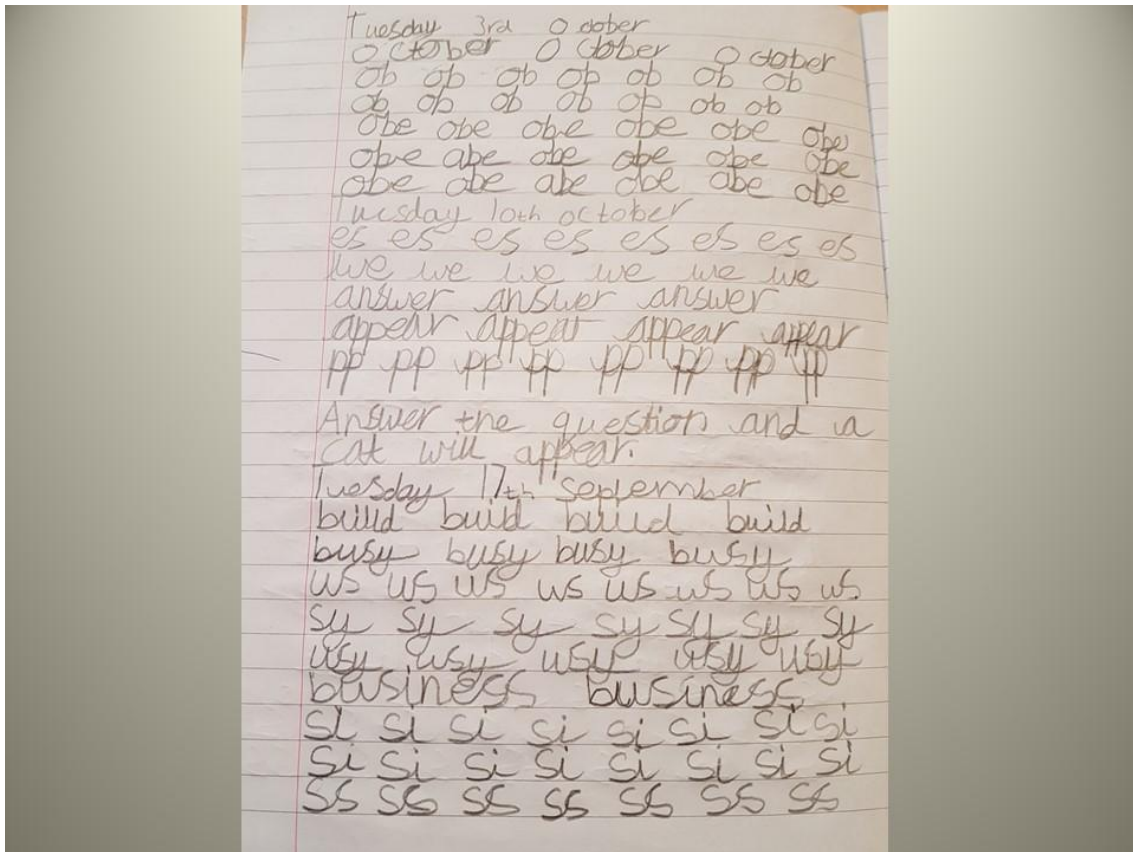 Tuesday 3rd October
October October October
ob ob ob ob ob ob ob
ob ob ob ob ob ob ob
obe obe obe obe obe obe
obe abe obe obe obe obe
obe obe abe obe abe obe
Tuesday 10th october
es es es es es es es es
we we we we we we
answer answer answer
appear appear appear appear
pp pp pp pp pp pp pp pp
Answer the question and a
cat will appear.
Tuesday 17th September
build build build build
busy busy busy busy
us us us us us us us us
sy sy sy sy sy sy sy
usy usy usy usy usy
business business
si si si si si si si si
si si si si si si si si
ss ss ss ss ss ss ss